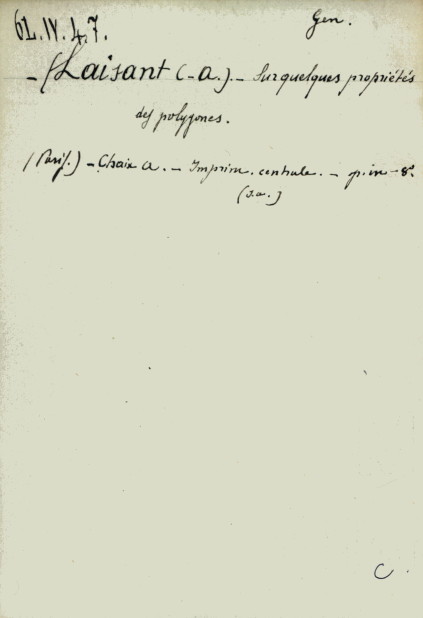 Gen.
62.IV.4.7.
- (Laisant (-a.). - Sur quelques propriétés
des polygones.
(Paris.) - Chaix a. - Imprim. centrale. - p. in - 8º.
(s.a.)
C